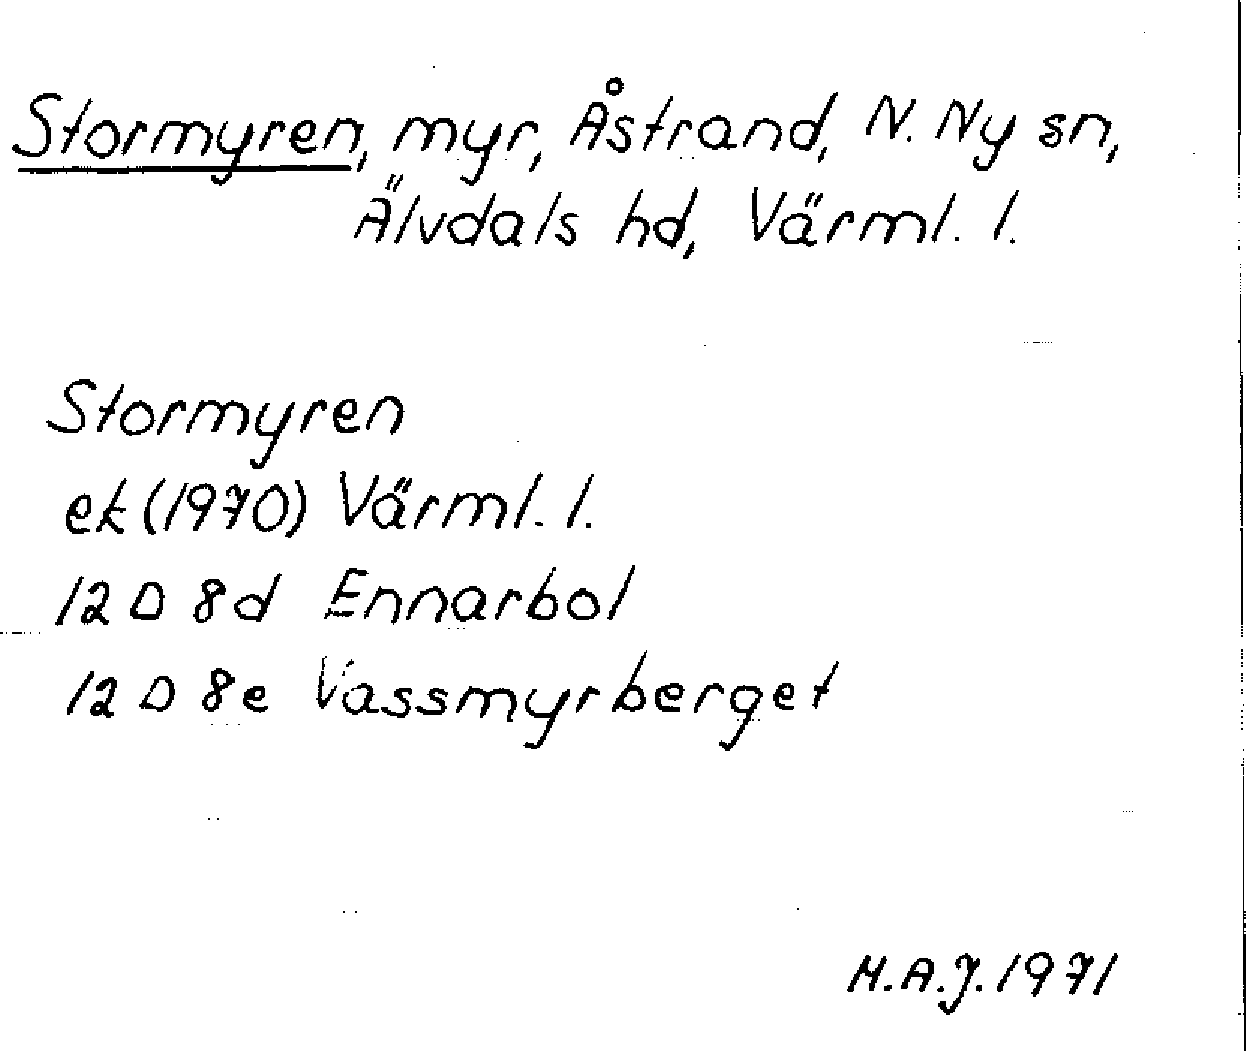 Stormyren, myr, Åstrand, N. Ny sn,
Älvdals hd, Värml. l.
Stormyren
ek (1970) Värml. l.
12 D 8d Ennarbol
12 D 8e Vassmyrberget
M.A.J. 1971